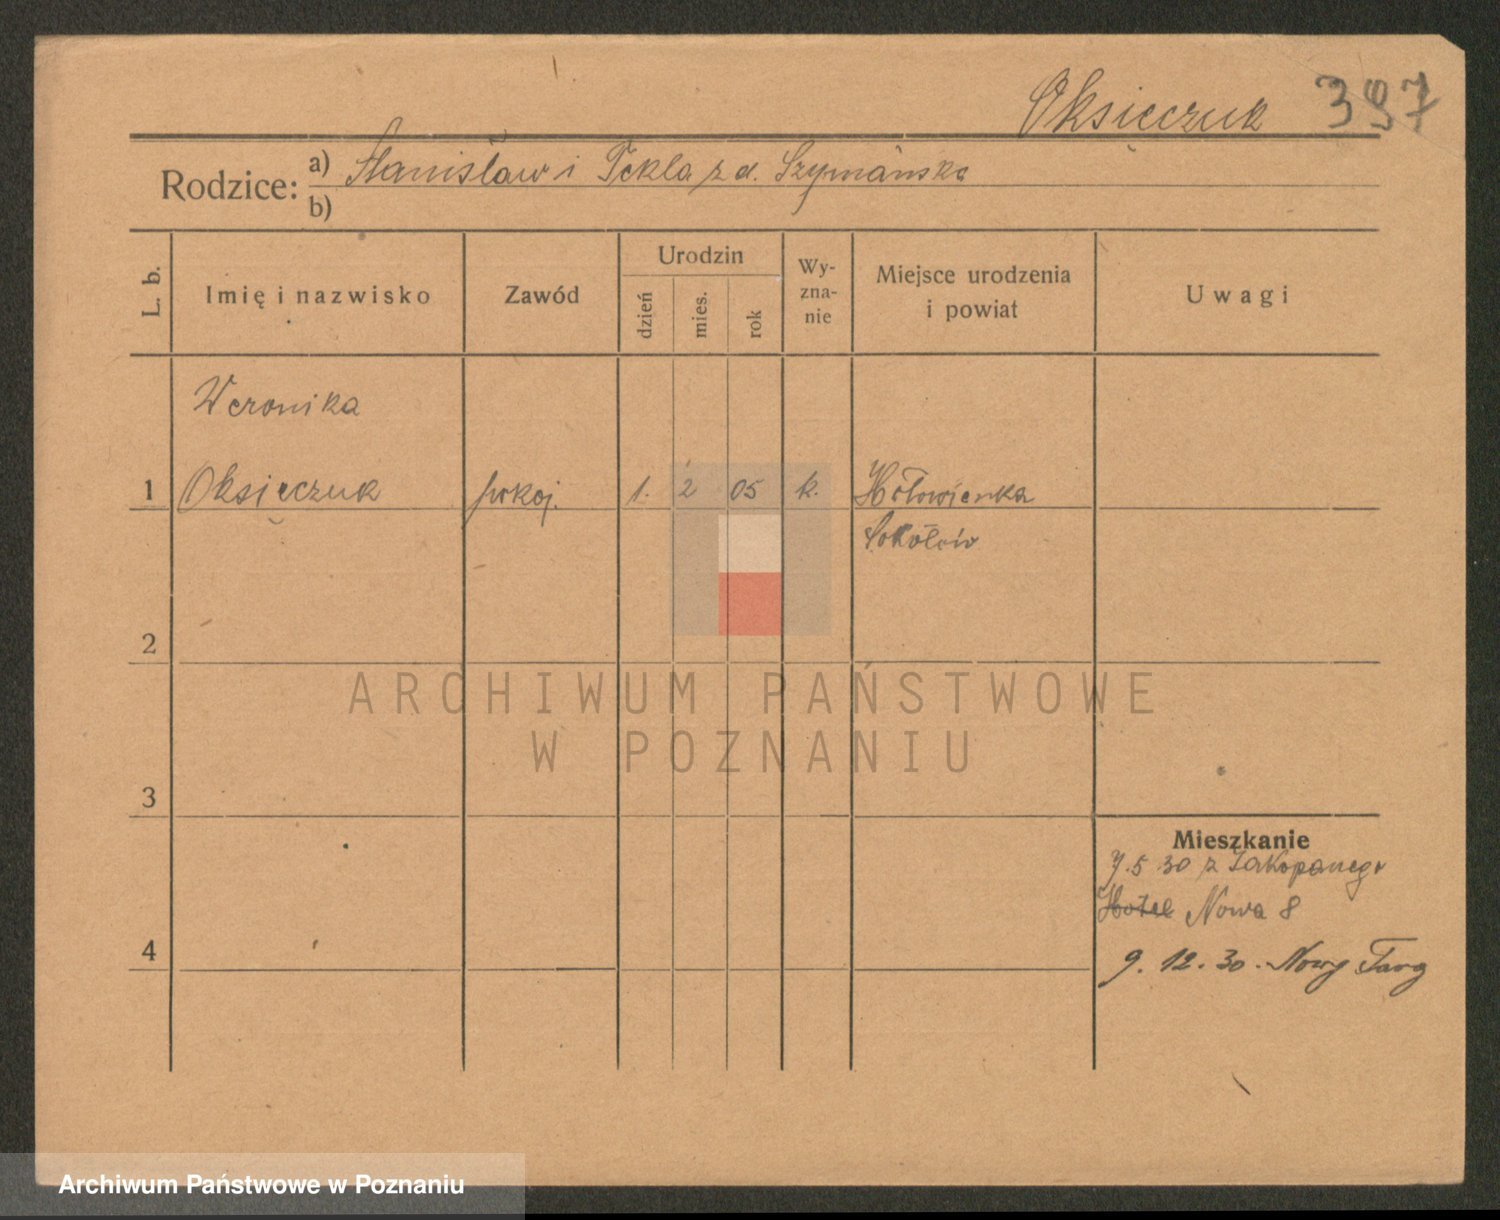 Oksieczuk 397
Rodzice: a) Stanisław i Tekla z d. Szymańska
b)
L. b. Imię i nazwisko Zawód Urodzin dzień mies. rok Wy-zna-nie Miejsce urodzenia i powiat Uwagi
Weronika
1 Oksieczuk pokoj. 1. 2 05 k. Hołowienka
Sokołów
2
ARCHIWUM PAŃSTWOWE
W POZNANIU
3
Mieszkanie
7.5 30 z Zakopanego
Hotel Nowa 8
4
9. 12. 30. Nowy Targ
Archiwum Państwowe w Poznaniu